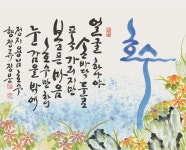 호수
얼골 하나야
손바닥 둘로
폭 가리지만
보고픈 마음
호수만하니
눈 감을 밖에
정지용님의 호수